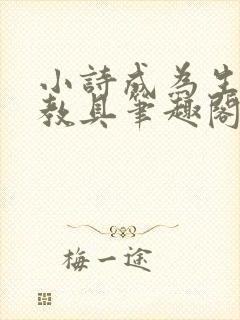 小詩成為生
教具筆趣閣
梅一途